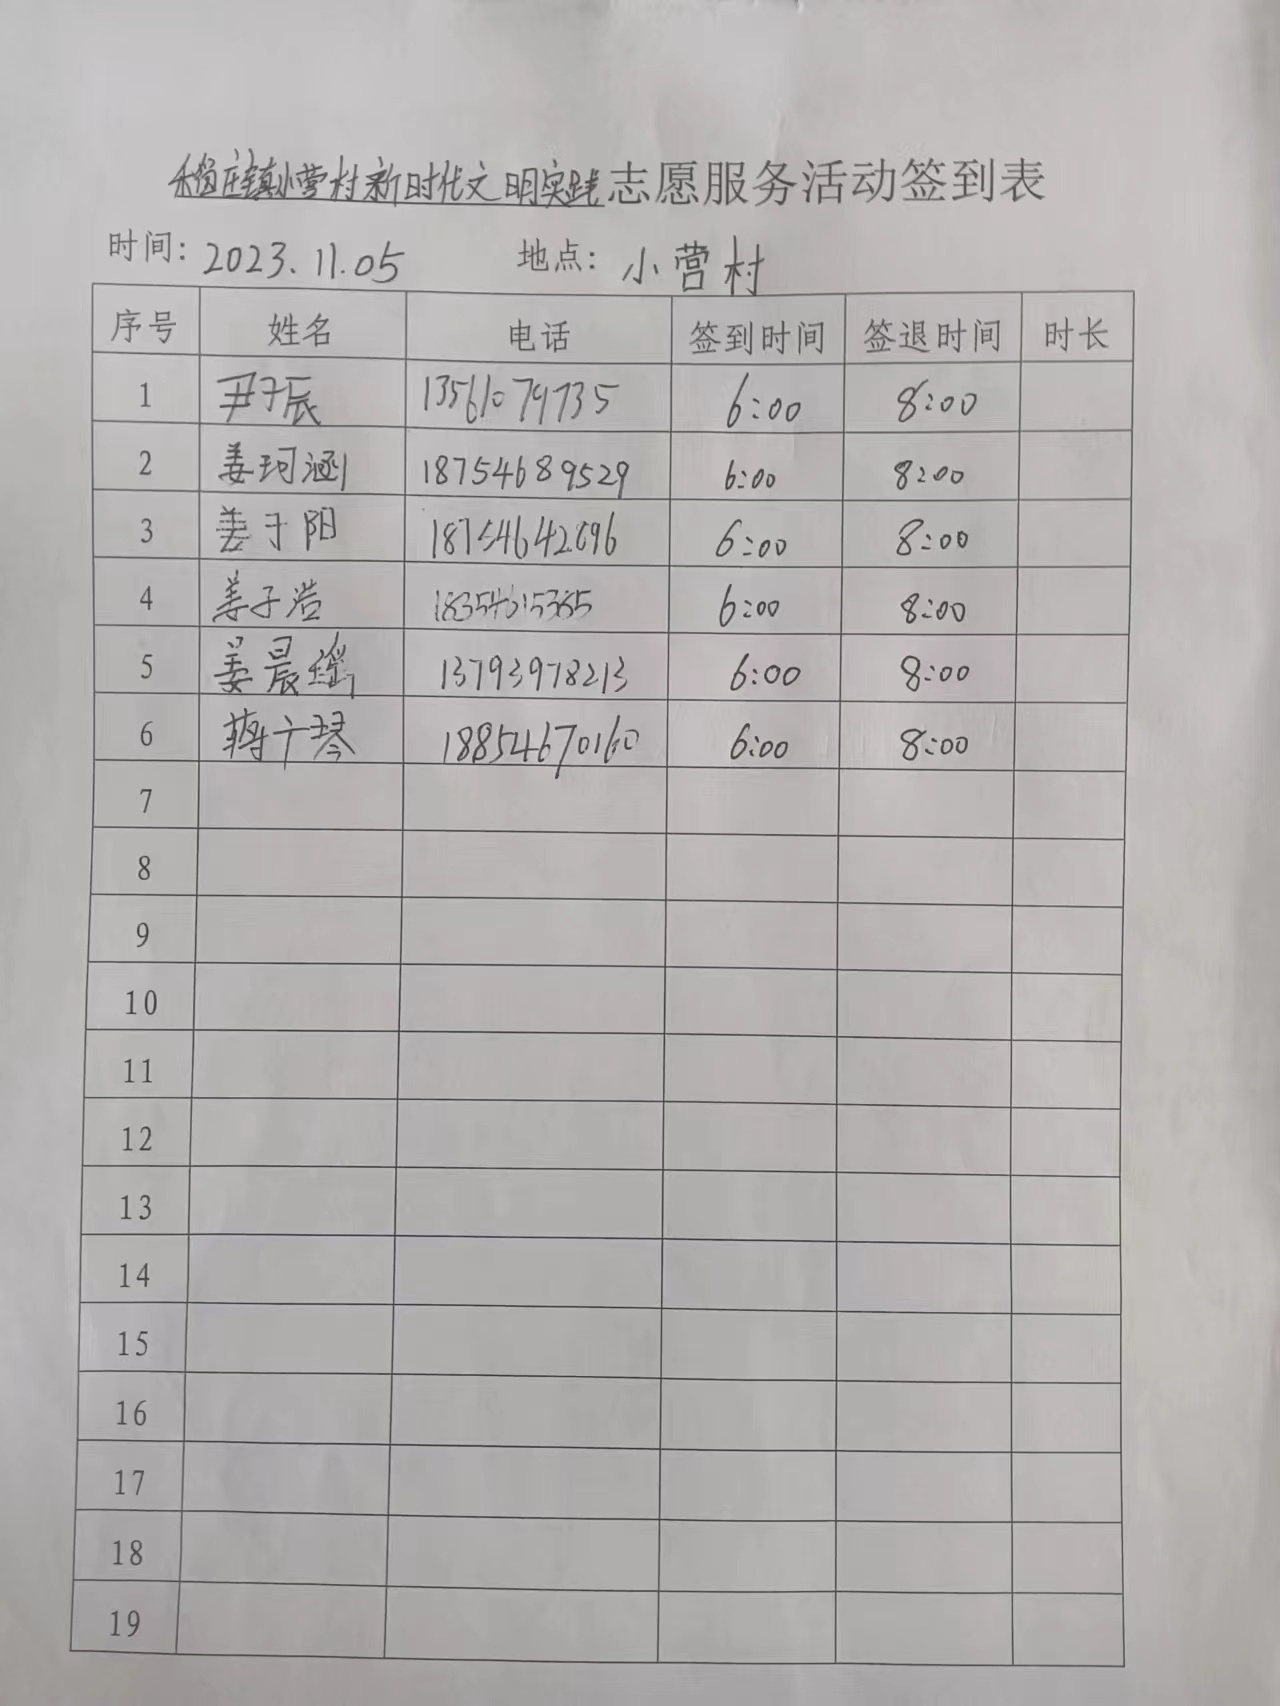 稻庄镇小营村新时代文明实践志愿服务活动签到表
时间: 2023.11.05 地点: 小营村
序号 姓名 电话 签到时间 签退时间 时长
1 尹于辰 13561079735 6:00 8:00
2 姜珂涵 18754689529 6:00 8:00
3 姜于阳 18754642696 6:00 8:00
4 姜子浩 18354615365 6:00 8:00
5 姜晨瑶 13793978213 6:00 8:00
6 蒋广琴 18854670160 6:00 8:00
7
8
9
10
11
12
13
14
15
16
17
18
19